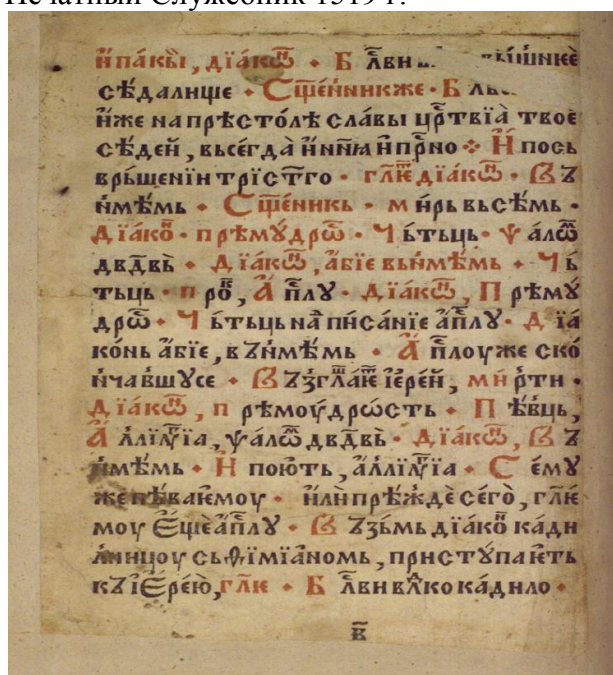 Печатный Служебник 1519 г.
и҆па́кы, дїа́кѡ҃ • Б л҃ви вы́шнкѐ
сѣда́лище • С щ҃е́нникже • Б л҃
и҆́же на прѣсто́лѣ сла́вы цр҃твїа̀ твое
сѣде́й, вьсегда̀ и҆нн҃ꙗ и҆пр҃но ⁘ И҆ посъ
врьще́нїи трїст҃го • гл҃ѥ дїа́кѡ҃ • В ꙁ
нмѣ́мь • С щ҃е́никь • м и́рь вьсѣ́мь •
Д їа́ко҃ • п рѣмꙋ́дрѡ҃ • Ч ь́тьць • Ѱ а́лѡ҃
дв҃дѣь • Д їа́кѡ҃, а҆́бїе вьнмѣ́мь • Ч ь́
тьць • п ро҃, А҆ п҃лꙋ • Д їа́кѡ҃, П рѣмꙋ́
дрѡ҃ • Ч ь́тьць на҃ писа́нїе а҆п҃лꙋ • Д їа́
ко́нь а҆́бїе, в ꙁнмѣ́мь • А҆ п҃лоуже ско
нча́вшꙋсе • В ꙁгла҃ѥ і҆ере́й, ми́ рти •
Д їа́кѡ҃, п рѣмоу́дрѡсть • П ѣ́вць,
А҆ ллїлꙋ҃їа, ѱа́лѡ҃ дв҃дѣь • Д їа́кѡ҃, В ꙁ
нмѣ́мь • И҆ пою́ть, а҆ллїлꙋ҃їа • С е́мꙋ
же пѣва́ѥмоу • и҆лѝ прѣ́ждѐ сего̀, гл҃ѥ
моу Є҆щѐ а҆п҃лꙋ • В ꙁь́мь дїа́ко҃ кади
лницоу сь ѳїмїа́номь, пристꙋ́паѥть
кꙁ і҆Єре́ю, гл҃ѥ • Б л҃ви вл҃ко кади́ло •
в҃